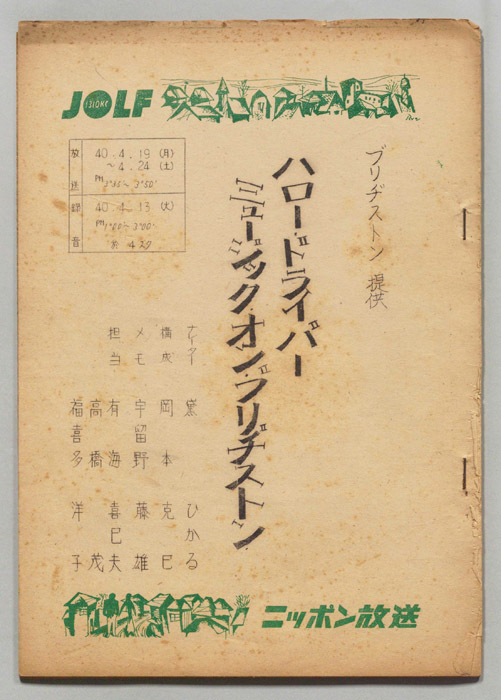 JOLF
1310KC
放送
40.4.19(月)
～4.24(土)
録音
40.4.13(火)
ブリヂストン 提供
ハロー・ドライバー
ミュージック・オン・ブリヂストン
ナレーター 黛 ひかる
構成 岡本 克巳
メモ 宇留野 藤雄
担当 有海 喜巳夫
高橋 茂
福喜多 洋子
ニッポン放送